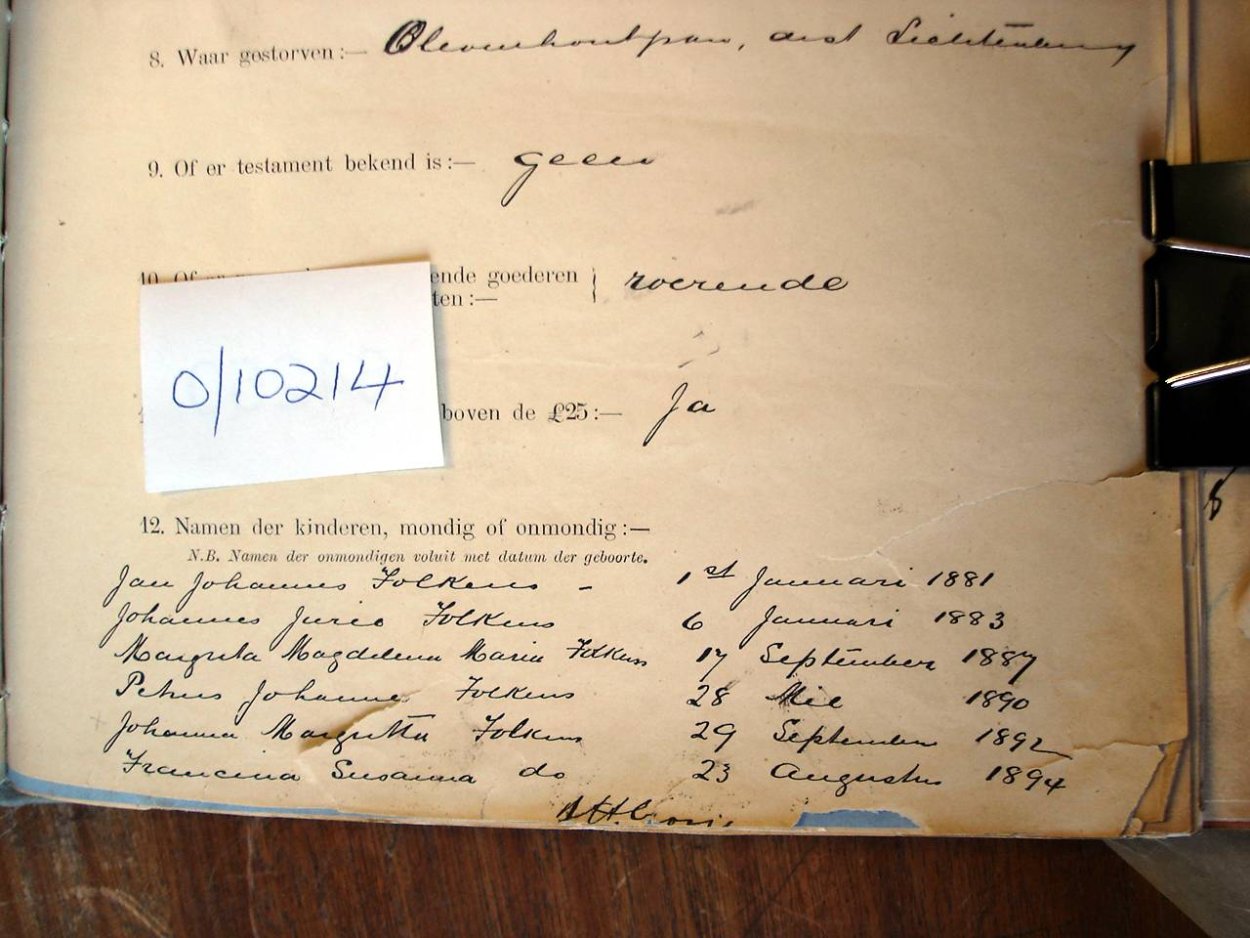 8. Waar gestorven:— Oliewenhoutpan, dist Lichtenburg
9. Of er testament bekend is:— geen
10. Of er ende goederen } roerende
ten:—
0/10214
boven de £25:— Ja
12. Namen der kinderen, mondig of onmondig:—
N.B. Namen der onmondigen voluit met datum der geboorte.
Jan Johannes Folkens - 1st Januari 1881
Johannes Jurie Folkens 6 Januari 1883
Margrita Magdelena Maria Folkens 17 September 1887
Petrus Johannes Folkens 28 Mei 1890
Johanna Margritta Folkens 29 September 1892
Francina Susanna do 23 Augustus 1894